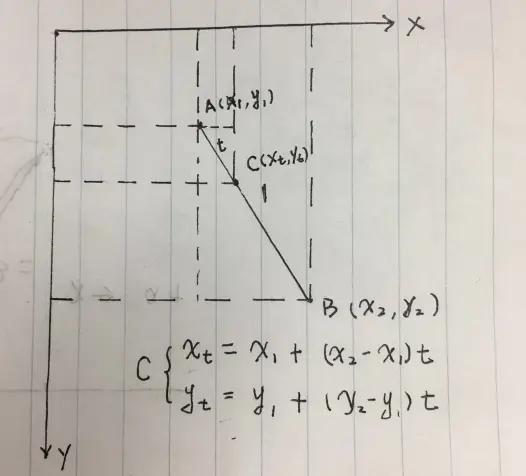 X
A(x₁,y₁)
t
C(xₜ,yₜ)
B(x₂,y₂)
C { xₜ = x₁ + (x₂-x₁)t
yₜ = y₁ + (y₂-y₁)t
Y